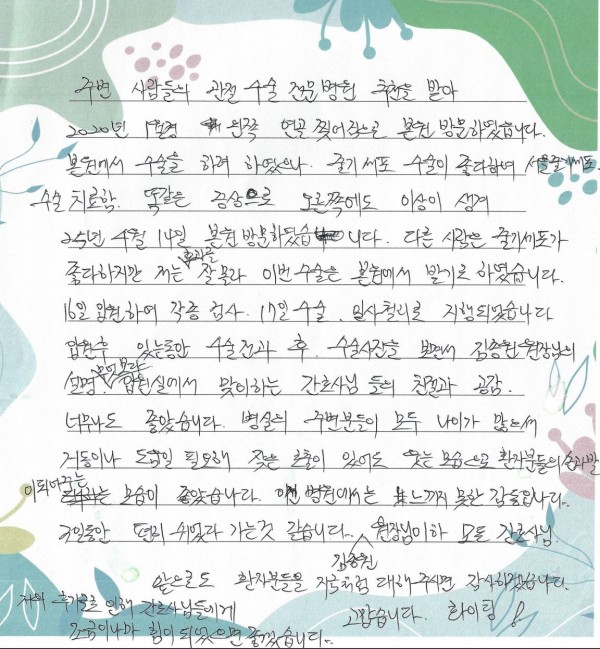 주변 사람들의 관절 수술 전문병원 추천을 받아
2020년 1월경 왼쪽 연골 찢어짐으로 본원 방문하였습니다.
본원에서 수술을 하려 하였으나. 줄기세포 수술이 좋다하여 서울줄기세포.
수술 치료함. 똑같은 증상으로 오른쪽에도 이상이 생겨
25년 4월 14일 본원 방문하였습니다. 다른 사람은 줄기세포가
좋다하지만 저는 효과를 잘 몰라 이번 수술은 본원에서 받기로 하였습니다.
16일 입원하여 각종 검사. 17일 수술. 일사천리로 진행되었습니다
입원후 있는동안 수술전과 후. 수술사진을 보면서 김종원 원장님의
설명. 입원실에서 맞이하는 간호사님 들의 친절과 공감.
너무나도 좋았습니다. 병실의 주변분들이 모두 나이가 많으셔
거동이나 도움이 필요해 잦은 호출이 있어도 웃는 모습으로 환자분들의 손과발
이 되어주는 모습이 좋았습니다. 병원에서는 느끼지 못한 감동입니다..
3일동안 편히 쉬었다 가는것 같습니다.. 김종원 원장님이하 모든 간호사님
앞으로도 환자분들을 지금처럼 대해주시면 감사하겠습니다.
저의 후기로 인해 간호사님들에게 고맙습니다. 화이팅!
조금이나마 힘이 되었으면 좋겠습니다..